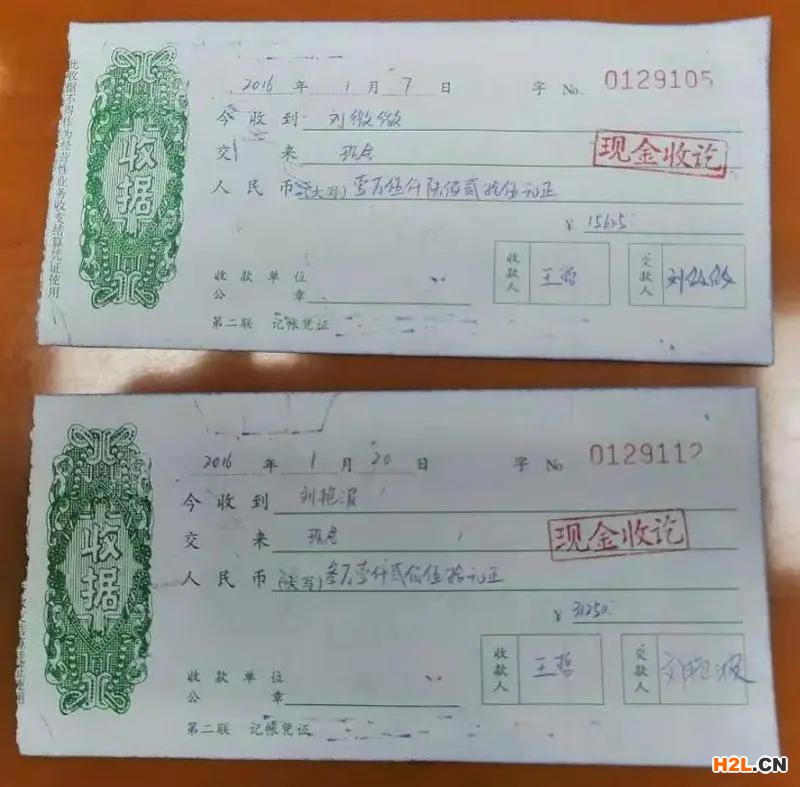 收据
此收据不得作为经营性业务收支结算凭证使用
2016 年 1 月 7 日 字 No. 0129105
今收到 刘微微
交来 现金
现金收讫
人民币(大写) 壹万伍仟陆佰贰拾伍元正
¥ 15625
收款单位
公章
收款人 王哲
交款人 刘微微
第二联 记帐凭证
收据
2016 年 1 月 20 日 字 No 0129112
今收到 刘艳波
交来 现金
现金收讫
人民币(大写) 叁万壹仟贰佰伍拾元正
¥ 31250
收款单位
公章
收款人 王哲
交款人 刘艳波
第二联 记帐凭证
H2L.CN